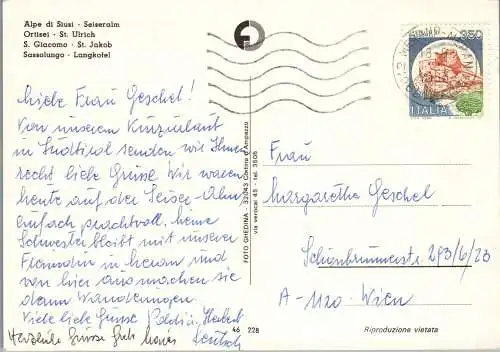 Alpe di Siusi - Seiseralm
Ortisei - St. Ulrich
S. Giacomo - St. Jakob
Sassolungo - Langkofel
350
ITALIA
Liebe Frau Geschel!
Von unserem Kurzurlaub
in Südtirol senden wir Ihnen
recht liebe Grüsse. Wir waren
heute auf der Seiser-Alm
einfach prachtvoll. Meine
Schwester bleibt mit unserer
Freundin in und
von hier aus machen sie
dann Wanderungen.
Viele liebe Grüsse Poldi u.
Herzliche Grüsse
FOTO GHEDINA - 32043 Cortina d'Ampezzo
via verocai 45 - tel. 3605
Frau
Margarethe Geschel
Schönbrunnerstr. 293/6/23
A-1120 Wien
46 228
Riproduzione vietata